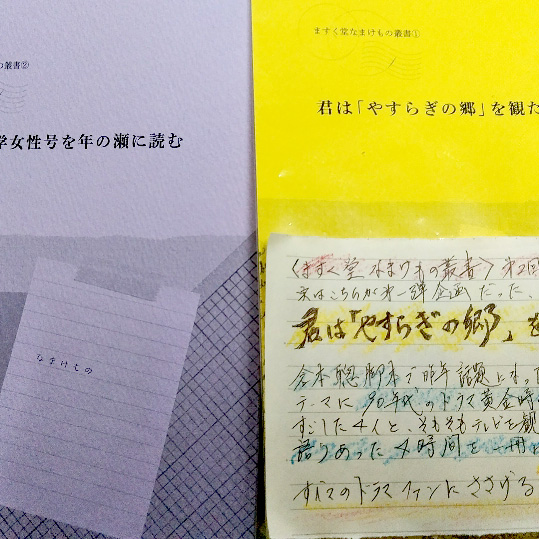 の叢書②
学女性号を年の瀬に読む
なまけもの
ますく堂なまけもの叢書①
君は「やすらぎの郷」を観た
〈ますく堂なまけもの叢書〉第2回
実はこちらが第一弾企画だった、
君は「やすらぎの郷」を
倉本聰脚本で昨年話題となった
テーマに90年代のドラマ黄金時
すごした4人と、そもそもテレビを観
語りあった4時間を一冊に
すべてのドラマファンにささげる